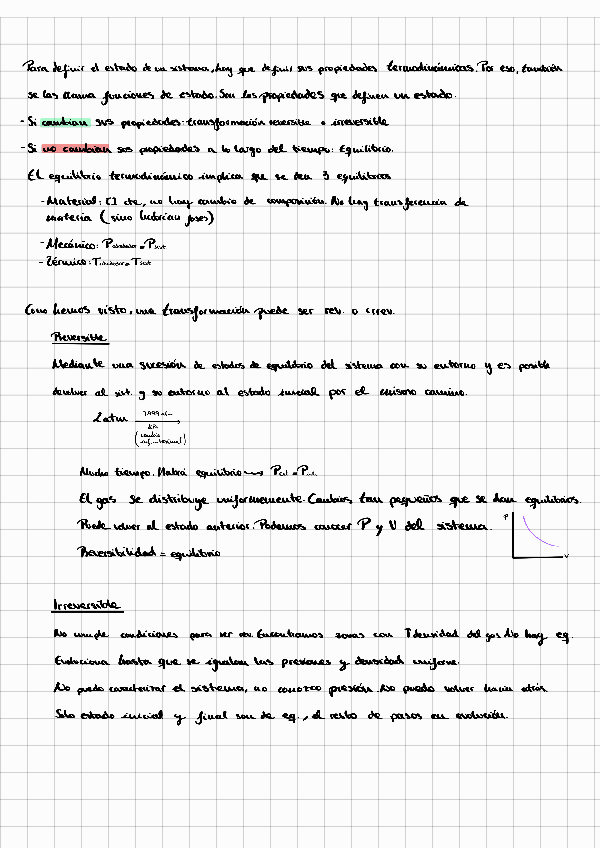 Para definir el estado de un sistema, hay que definir sus propiedades termodinámicas. Por eso, también
se las llama funciones de estado. Son las propiedades que definen un estado.
- Si cambian sus propiedades: transformación reversible o irreversible
- Si no cambian sus propiedades a lo largo del tiempo: Equilibrio.
El equilibrio termodinámico implica que se den 3 equilibrios
- Material: [] cte, no hay cambio de composición. No hay transferencia de
materia (sino habrían fases)
- Mecánico: P = P sist
- Térmico: T = T sist
Como hemos visto, una transformación puede ser rev. o irrev.
Reversible
Mediante una sucesión de estados de equilibrio del sistema con su entorno y es posible
devolver al sist. y su entorno al estado inicial por el mismo camino.
2 atm
(cambio
infinitesimal)
Mucho tiempo. Habrá equilibrio → P = P
El gas se distribuye uniformemente. Cambios tan pequeños que se dan equilibrios.
Puede volver al estado anterior. Podemos conocer P y V del sistema.
P
V
Reversibilidad = equilibrio
Irreversible
No cumple condiciones para ser rev. Encontramos zonas con ↑densidad del gas. No hay eq.
Evoluciona hasta que se igualan las presiones y densidad uniforme.
No puedo caracterizar el sistema, no conozco presión. No puedo volver hacia atrás.
Solo estado inicial y final son de eq., el resto de pasos en evolución.